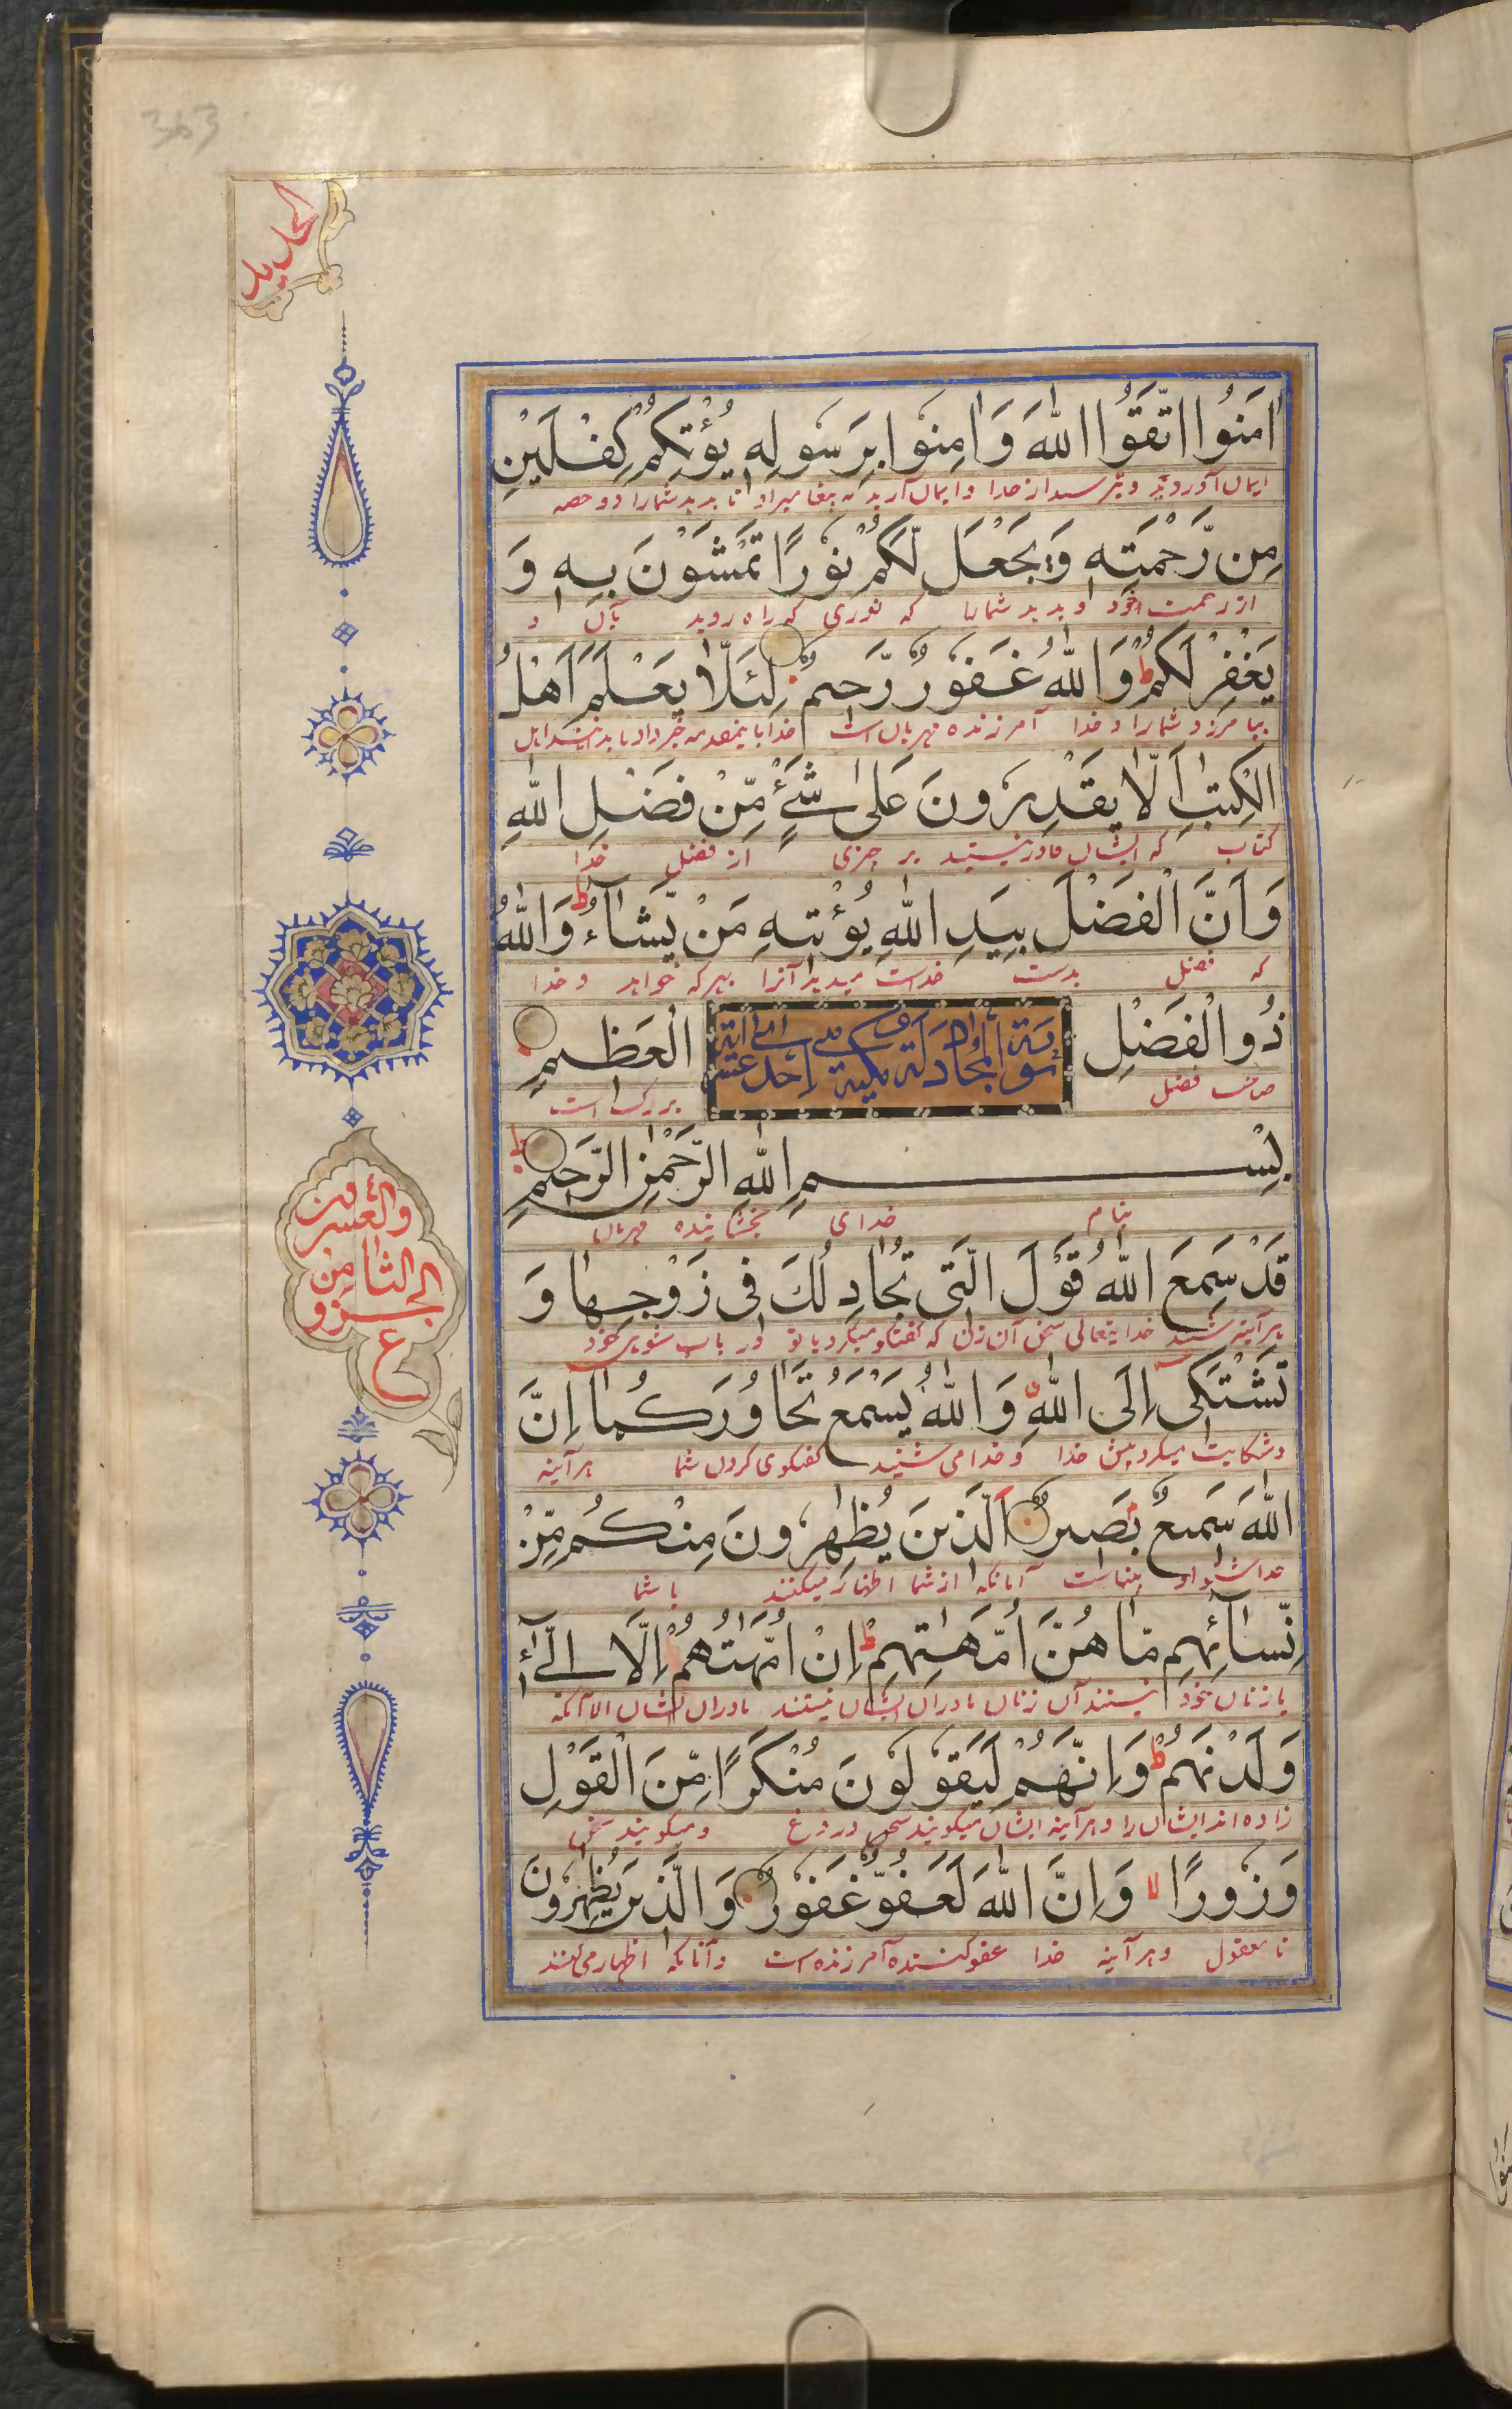 363
الحدید
اٰمَنُوا اتَّقُوا اللّٰهَ وَاٰمِنُوْا بِرَسُوْلِهٖ يُؤْتِكُمْ كِفْلَيْنِ
ایمان آوردید و بترسید از خدا و ایمان آرید به پیغامبر او تا بدهد شمارا دو حصه
مِنْ رَّحْمَتِهٖ وَيَجْعَلْ لَّكُمْ نُوْرًا تَمْشُوْنَ بِهٖ وَ
از رحمت خود و بدهد شمارا که نوری که راه روید بآن و
يَغْفِرْ لَكُمْ ط وَاللّٰهُ غَفُوْرٌ رَّحِيْمٌ لِّئَلَّا يَعْلَمَ اَهْلُ
بیامرزد شمارا و خدا آمرزنده مهربان است
الْكِتٰبِ اَلَّا يَقْدِرُوْنَ عَلٰى شَيْءٍ مِّنْ فَضْلِ اللّٰهِ
کتاب که ایشان قادر نیستند بر چیزی از فضل خدا
وَاَنَّ الْفَضْلَ بِيَدِ اللّٰهِ يُؤْتِيْهِ مَنْ يَّشَآءُ ط وَاللّٰهُ
که فضل بدست خداست میدهد آنرا بهر که خواهد و خدا
ذُو الْفَضْلِ الْعَظِيْمِ
سورة المجادلة
صاحب فضل بزرگ است
بِسْمِ اللّٰهِ الرَّحْمٰنِ الرَّحِيْمِ
بنام خدای بخشاینده مهربان
قَدْ سَمِعَ اللّٰهُ قَوْلَ الَّتِيْ تُجَادِلُكَ فِيْ زَوْجِهَا وَ
هر آینه شنید خدایتعالی سخن آن زن که گفتگو میکرد با تو در باب شوهر خود
تَشْتَكِيْ اِلَى اللّٰهِ وَاللّٰهُ يَسْمَعُ تَحَاوُرَكُمَا اِنَّ
و شکایت میکرد پیش خدا و خدا می شنید گفتگوی کردن شما هر آینه
اللّٰهَ سَمِيْعٌ بَصِيْرٌ اَلَّذِيْنَ يُظٰهِرُوْنَ مِنْكُمْ مِّنْ
خدا شنوا و بیناست آنانکه از شما اظهار میکنند با شما
نِّسَآئِهِمْ مَّا هُنَّ اُمَّهٰتِهِمْ ط اِنْ اُمَّهٰتُهُمْ اِلَّا الّٰٓـئِْ
با زنان خود نیستند آن زنان مادران ایشان نیستند مادران ایشان الا آنکه
وَلَدْنَهُمْ ط وَاِنَّهُمْ لَيَقُوْلُوْنَ مُنْكَرًا مِّنَ الْقَوْلِ
زاده اند ایشان را و هر آینه ایشان میگویند سخن دروغ و میگویند سخن
وَزُوْرًا لا وَاِنَّ اللّٰهَ لَعَفُوٌّ غَفُوْرٌ وَالَّذِيْنَ يُظٰهِرُوْنَ
نامعقول و هر آینه خدا عفو کننده آمرزنده است و آنانکه اظهار می کنند
والعشرون
الثامن
الجزو
ع